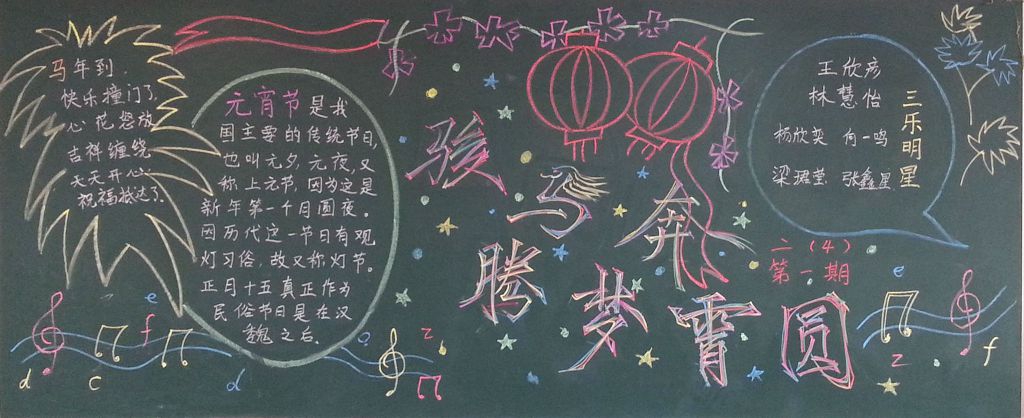 马年到，
快乐撞门了
心花怒放
吉祥缠绕
天天开心
祝福抵达了
元宵节是我
国主要的传统节日，
也叫元夕，元夜，又
称上元节，因为这是
新年第一个月圆夜。
因历代这一节日有观
灯习俗，故又称灯节。
正月十五真正作为
民俗节日是在汉
魏之后。
骏马奔腾
梦霄圆
二（4）
第一期
三乐明星
王欣彦
林慧怡
杨欣奕 向一鸣
梁珺莹 张鑫星
e
f
d
c
d
e
z
e
z
f